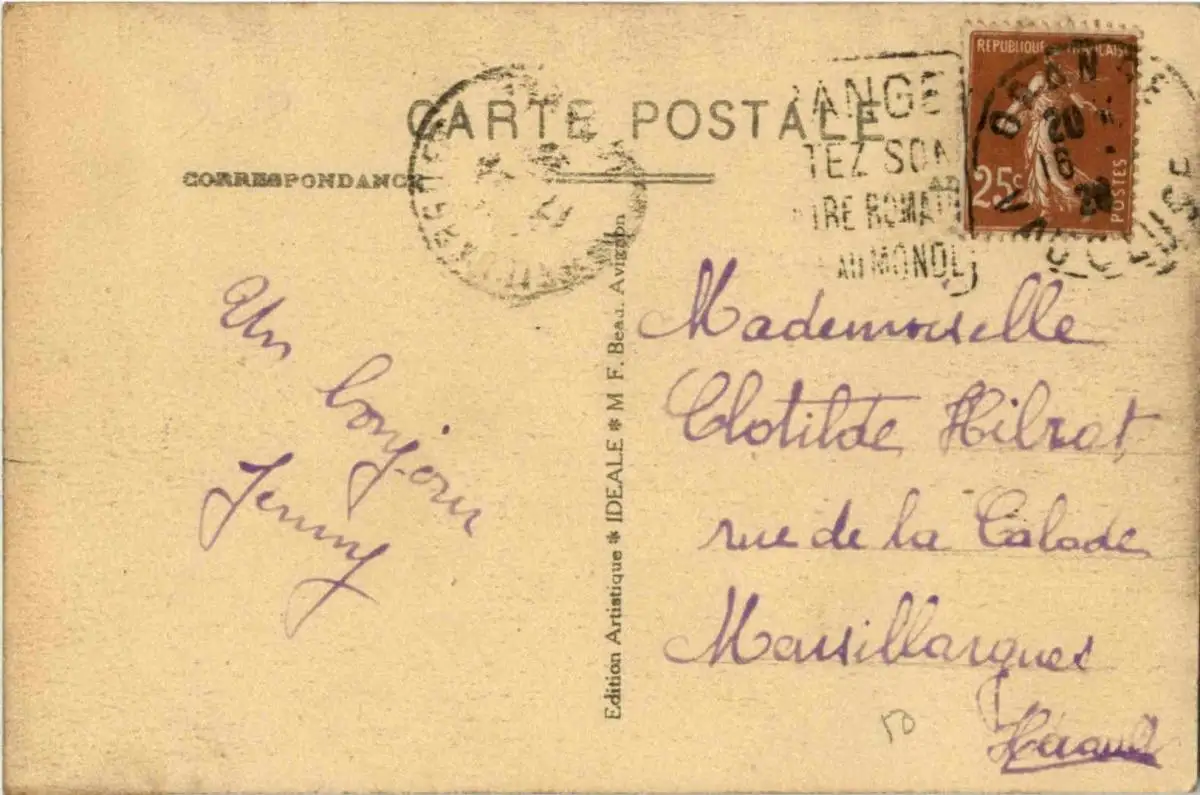 CARTE POSTALE
CORRESPONDANCE
REPUBLIQUE FRANÇAISE
25c
POSTES
ORANGE
20
16
VAUCLUSE
ANGE
TEZ SON
ROMAIN
AU MONDE
Un
bonjour
Jenny
Edition Artistique * IDEALE * M F. Beau. Avignon
Mademoiselle
Clotilde Hilrat
rue de la Calade
Marsillargues
Hérault
50